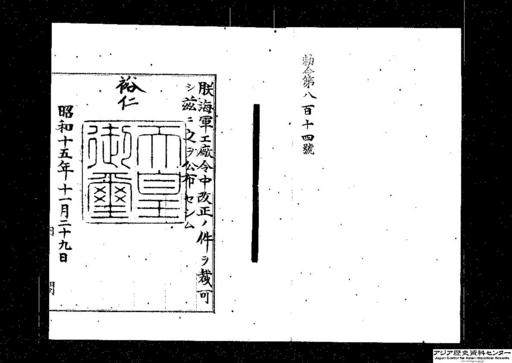 勅令第八百十四號
朕海軍工廠令中改正ノ件ヲ裁可
シ茲ニ之ヲ公布セシム
裕仁
天皇
御璽
昭和十五年十一月二十九日
アジア歴史資料センター
Japan Center for Asian Historical Records